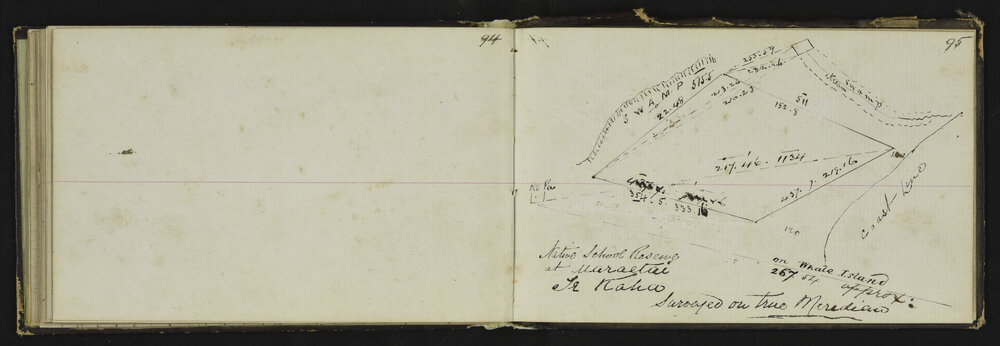 94
95
SWAMP
515.5
22.48
255.59
232.26
213.26
511
152.8
Swamp
217.46. 1134
437. 7
Old Pa
354.5 333.16
120
Coast Line
Native School Reserve
at Maraetai
Te Kaha
on Whale Island
267 54 approx:
Surveyed on true Meridian